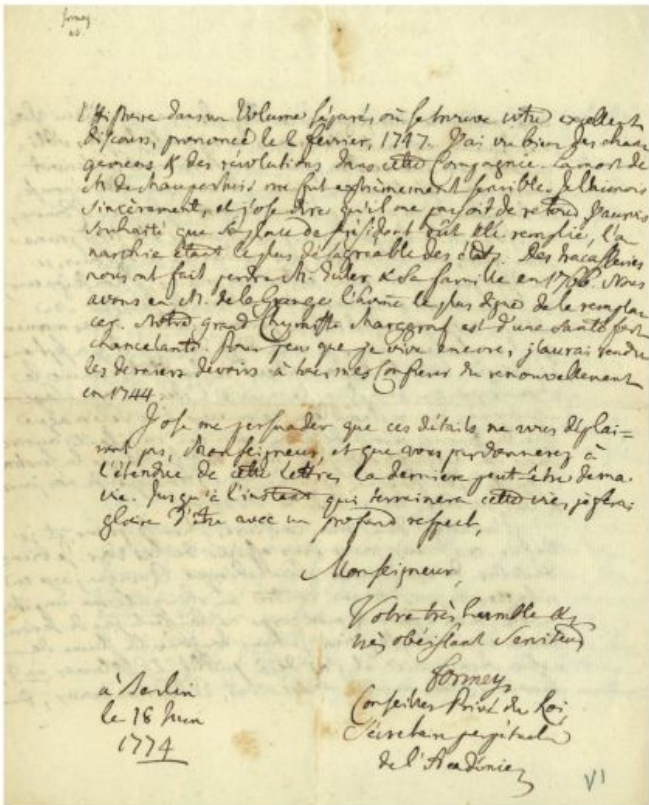 formey
l'histoire dans un Volume séparés où se trouve votre excellent
discours, prononcé le 2 février, 1747. J'ai vu bien des chan
gemens, & des revolutions dans cette Compagnie. La mort de
M. de Maupertuis me fut extrémement sensible. Je l'aimois
sincèrement, et j'ose dire qu'il me payoit de retour. J'aurois
souhaité que sa place de Président eut été remplie, l'a
narchie étant le plus désagréable des états. Des tracasseries
nous ont fait perdre M. Euler & sa famille en 1766. Nous
avons eu M. de la Grange l'homme le plus digne de le rempla
cer. Notre grand Chymiste Marggraf est d'une santé fort
chancelante. Pour peu que je vive encore, j'aurai rendu
les derniers devoirs à tous mes Confreres du renouvellement
en 1744.
J'ose me persuader que ces détails ne vous déplai=
ront pas, Monseigneur, et que vous pardonnerez à
l'étendue de cette lettre, la derniere peut-être de ma
vie. Jusqu'à l'instant qui terminera cette vie, je ferai
gloire d'être avec un profond respect,
Monseigneur,
Votre très humble &
très obéissant Serviteur
formey
Conseiller Privé du Roi,
Sécrétaire perpétuel
de l'Académie
à Berlin
le 18 Juin
1774
VI